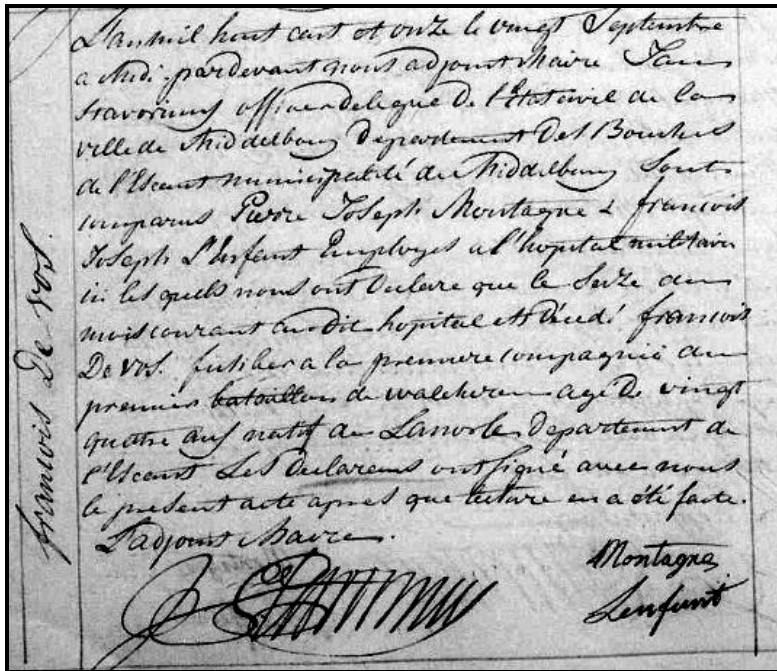 L'an mil huit cent et onze le vingt Septembre
a Midi pardevant nous adjoint Maire Jan
Stavorinus officier delegue de l'Etat civil de la
ville de Middelbourg Departement des Bouches
de l'Escaut municipalité de Middelbourg Sont
comparus Pierre Joseph Montagne & francois
Joseph L'Enfant Employes a l'hopital militaire
ici les quels nous ont Declare que le Seize du
mois courant au dit hopital est décedé francois
De vos. fusilier a la premiere compagnie du
premier bataillon de walcheren age de vingt
quatre ans natif de departement de
l'Escaut Les Declarans ont signé avec nous
le present acte apres que lecture en a été faite.
L'adjoint Maire.
Montagne
Lenfant
francois De vos.